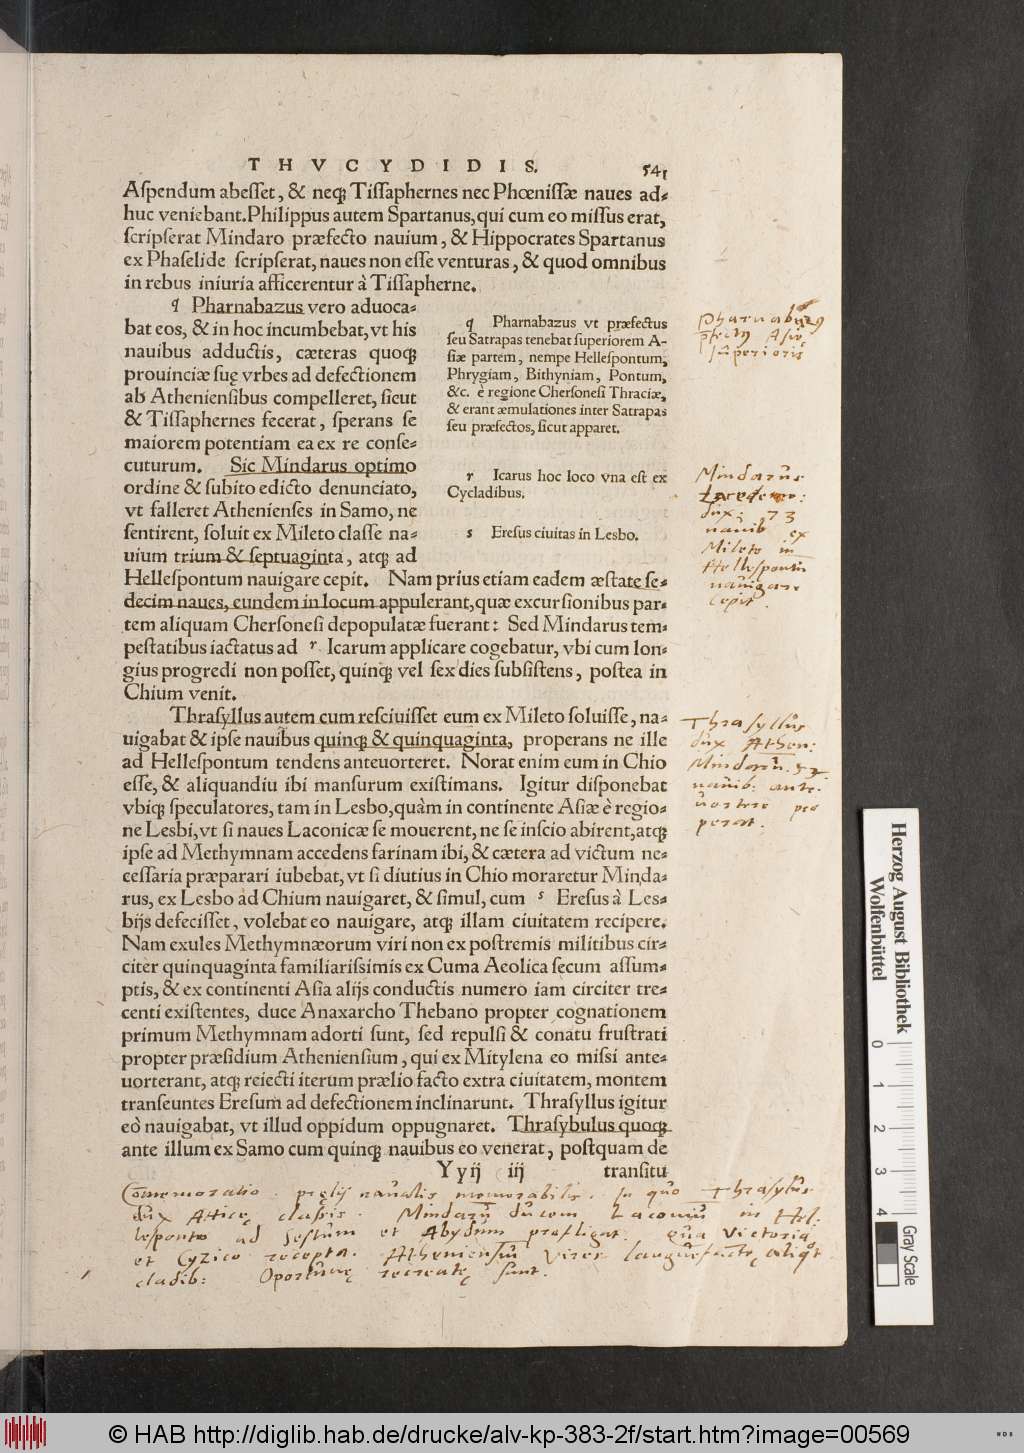 THVCYDIDIS. 541
Aſpendum abeſſet, & neq; Tiſſaphernes nec Phœniſſæ naues ad-
huc veniebant. Philippus autem Spartanus, qui cum eo miſſus erat,
ſcripſerat Mindaro præfecto nauium, & Hippocrates Spartanus
ex Phaſelide ſcripſerat, naues non eſſe venturas, & quod omnibus
in rebus iniuria afficerentur à Tiſſapherne.
q Pharnabazus vero aduoca-
bat eos, & in hoc incumbebat, vt his
nauibus adductis, cæteras quoq;
prouinciæ ſuę vrbes ad defectionem
ab Athenienſibus compelleret, ſicut
& Tiſſaphernes fecerat, ſperans ſe
maiorem potentiam ea ex re conſe-
cuturum. Sic Mindarus optimo
ordine & ſubito edicto denunciato,
vt falleret Athenienſes in Samo, ne
ſentirent, ſoluit ex Mileto claſſe na-
uium trium & ſeptuaginta, atq; ad
q Pharnabazus vt præfectus
ſeu Satrapas tenebat ſuperiorem A-
ſiæ partem, nempe Helleſpontum,
Phrygiam, Bithyniam, Pontum,
&c. è regione Cherſoneſi Thraciæ,
& erant æmulationes inter Satrapas
ſeu præfectos, ſicut apparet.
r Icarus hoc loco vna eſt ex
Cycladibus.
s Ereſus ciuitas in Lesbo.
Helleſpontum nauigare cepit. Nam prius etiam eadem æſtate ſe-
decim naues, eundem in locum appulerant, quæ excurſionibus par-
tem aliquam Cherſoneſi depopulatæ fuerant: Sed Mindarus tem-
peſtatibus iactatus ad r Icarum applicare cogebatur, vbi cum lon-
gius progredi non poſſet, quinq; vel ſex dies ſubſiſtens, poſtea in
Chium venit.
Thraſyllus autem cum reſciuiſſet eum ex Mileto ſoluiſſe, na-
uigabat & ipſe nauibus quinq; & quinquaginta, properans ne ille
ad Helleſpontum tendens anteuorteret. Norat enim eum in Chio
eſſe, & aliquandiu ibi manſurum exiſtimans. Igitur diſponebat
vbiq; ſpeculatores, tam in Lesbo, quàm in continente Aſiæ è regio-
ne Lesbi, vt ſi naues Laconicæ ſe mouerent, ne ſe inſcio abirent, atq;
ipſe ad Methymnam accedens farinam ibi, & cætera ad victum ne-
ceſſaria præparari iubebat, vt ſi diutius in Chio moraretur Minda-
rus, ex Lesbo ad Chium nauigaret, & ſimul, cum s Ereſus à Les-
bijs defeciſſet, volebat eo nauigare, atq; illam ciuitatem recipere.
Nam exules Methymnæorum viri non ex poſtremis militibus cir-
citer quinquaginta familiariſsimis ex Cuma Aeolica ſecum aſſum-
ptis, & ex continenti Aſia alijs conductis numero iam circiter tre-
centi exiſtentes, duce Anaxarcho Thebano propter cognationem
primum Methymnam adorti ſunt, ſed repulſi & conatu fruſtrati
propter præſidium Athenienſium, qui ex Mitylena eo miſsi ante-
uorterant, atq; reiecti iterum prælio facto extra ciuitatem, montem
tranſeuntes Ereſum ad defectionem inclinarunt. Thraſyllus igitur
eò nauigabat, vt illud oppidum oppugnaret. Thraſybulus quoq;
ante illum ex Samo cum quinq; nauibus eo venerat, poſtquam de
Yyij iij tranſitu
Pharnabazus
Asię
superioris
Mindarus
Lacedemo:
dux: 73
nauib ex
Mileto in
Hellespontum
nauigare
cepit.
Thrasyllus
dux Athen:
Mindarum 55.
nauib: ante-
uortere pro
perat.
Comemoratio pręlij naualis memorabilis. In quo Thrasylus
dux Atticę classis. Mindarū ducem Laconū in Hel:
lesponto ad Sestum et Abydum profligat. qua victoria
et Cyzico recepta. Atheniensiū vires languefactę aliqot
cladib: Oportunę recreatę sunt.
Herzog August Bibliothek
Wolfenbüttel
0 1 2 3 4
Gray Scale
© HAB http://diglib.hab.de/drucke/alv-kp-383-2f/start.htm?image=00569